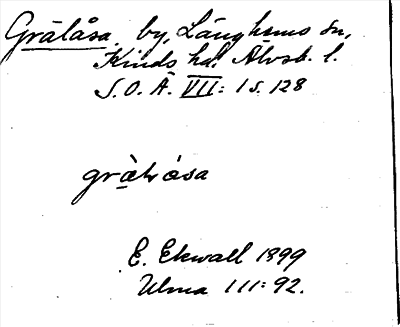 Grålåsa. by, Länghems sn,
Kinds hd. Älvsb. l.
S.O.Ä. VII: 1 s. 128
E. Ekwall 1899
Ulma 111: 92.